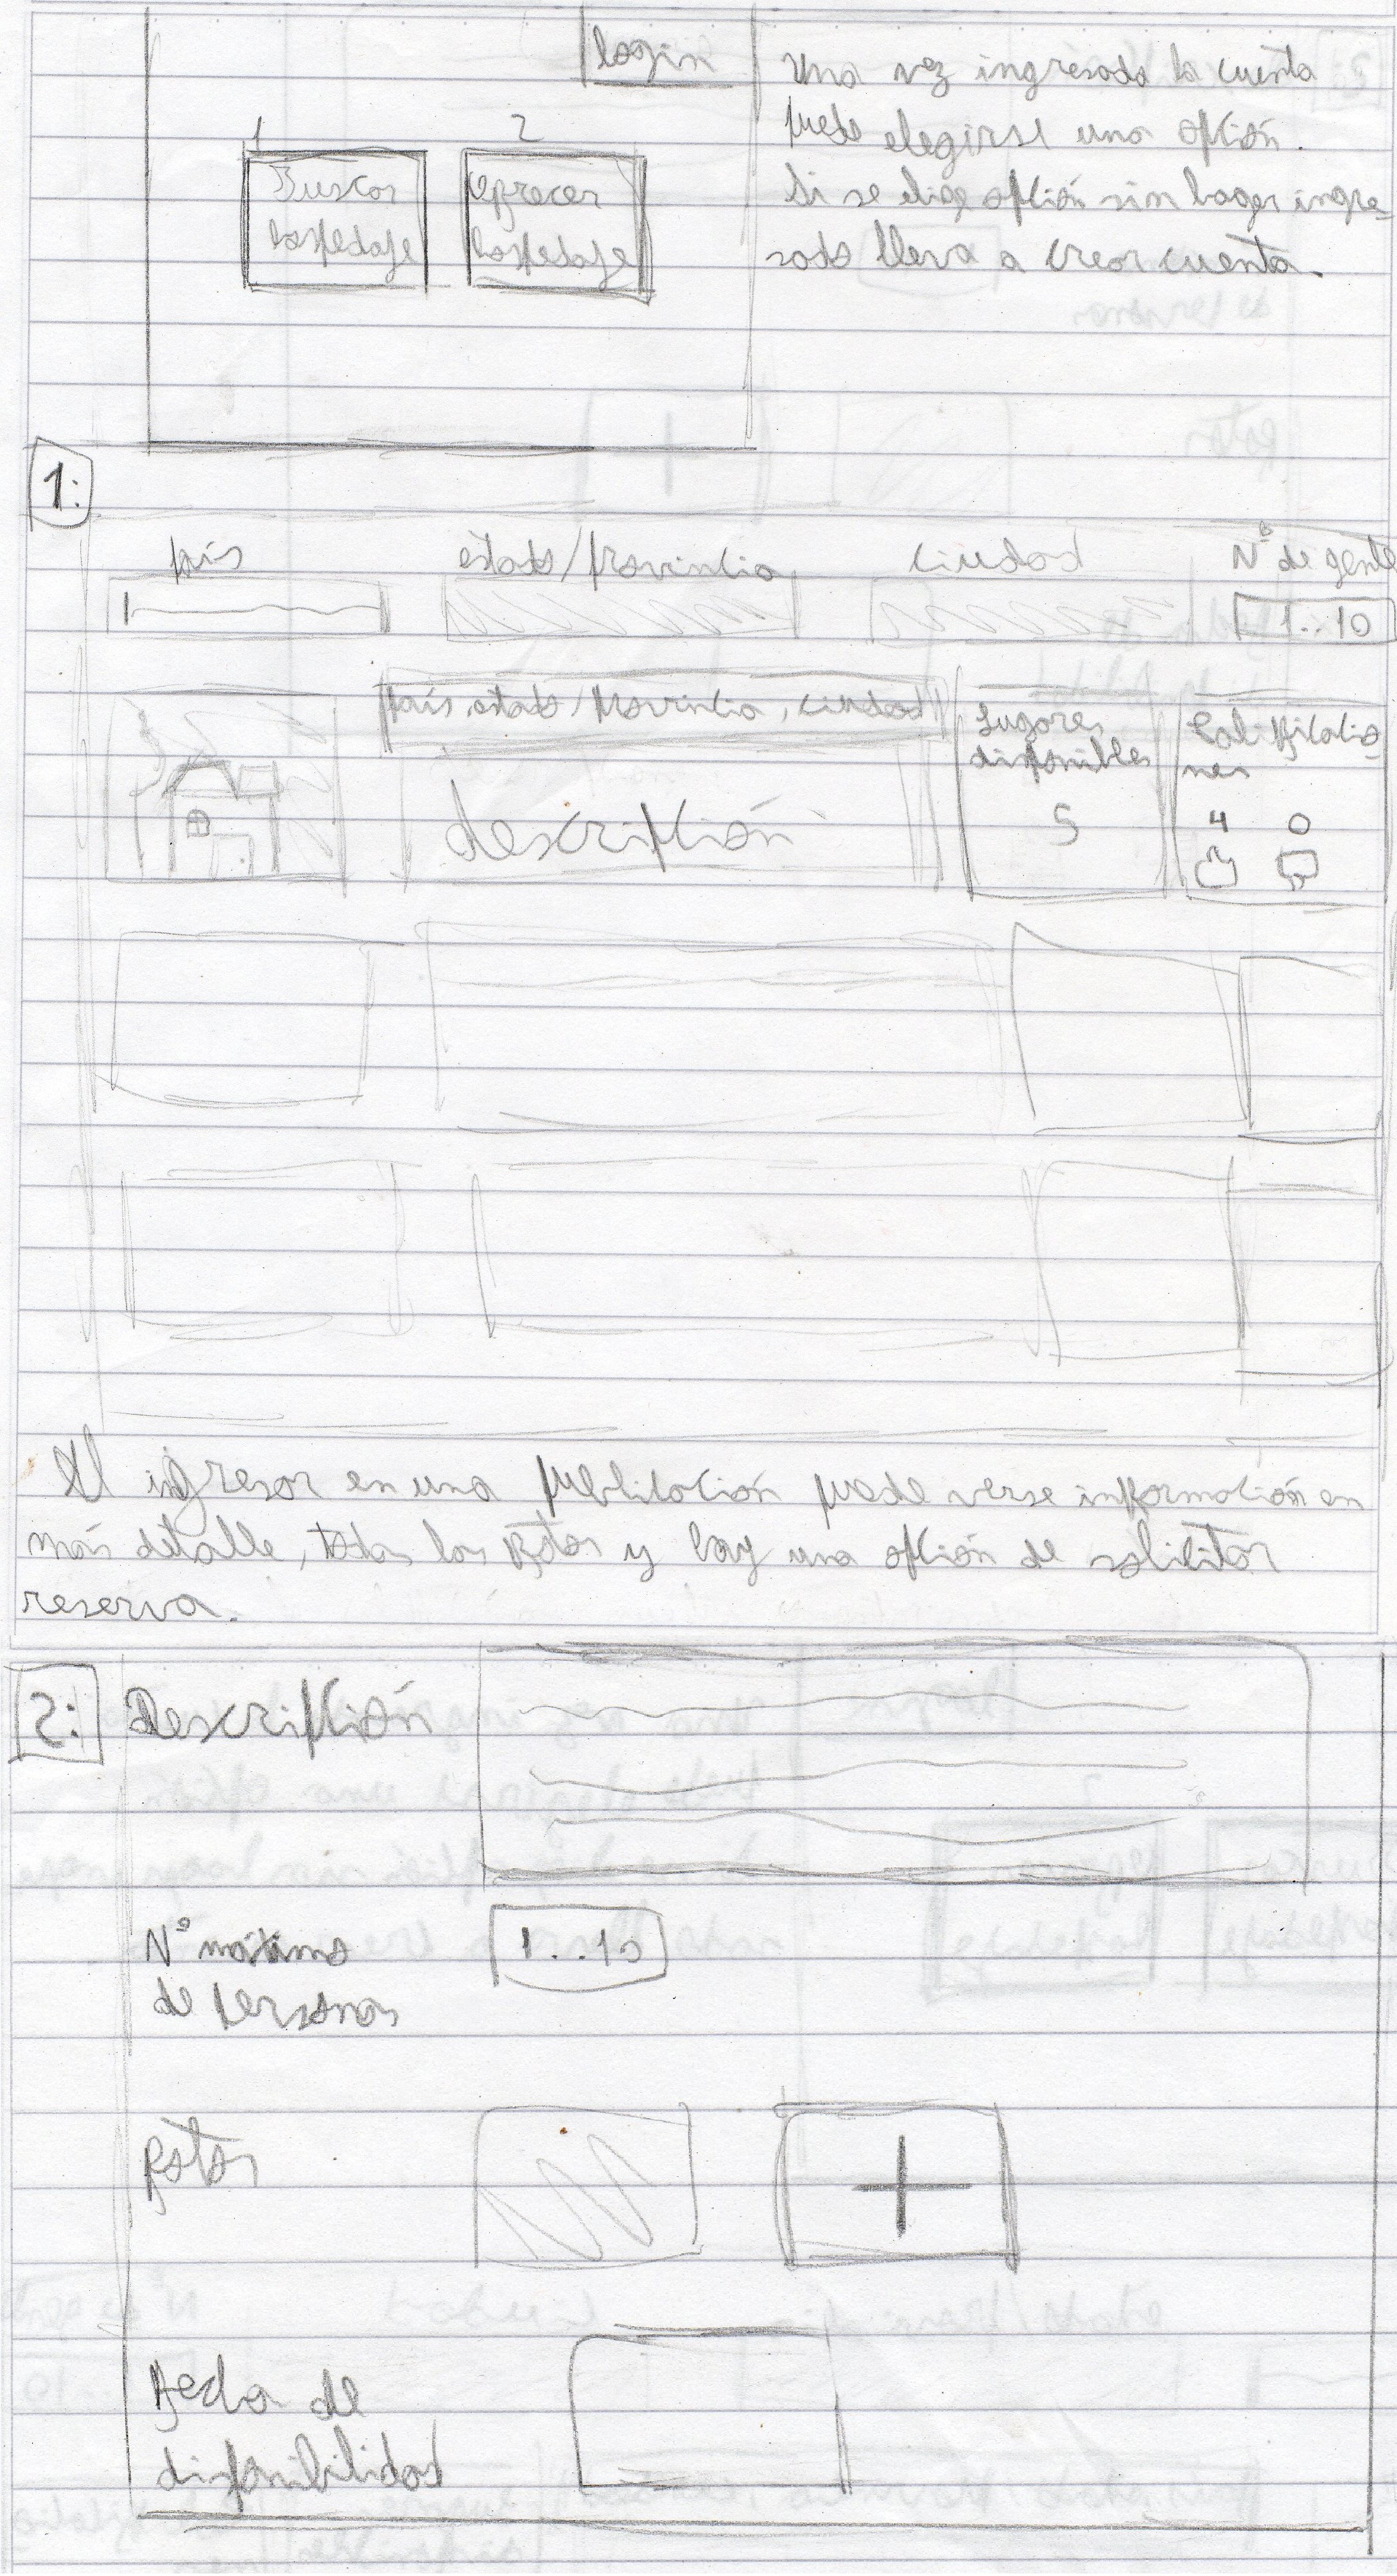 login
Una vez ingresada la cuenta
puede elegirse una opción.
Si se elige opción sin haber ingre-
sado lleva a crear cuenta.
1
2
Buscar
hospedaje
Ofrecer
hospedaje
1:
país
estado/provincia
ciudad
Nº de gente
1..10
país, estado/provincia, ciudad
descripción
Lugares
disponibles
5
Calificacio-
nes
4 0
Al ingresar en una publicación puede verse información en
más detalle, todas las fotos y hay una opción de solicitar
reserva.
2:
Descripción
Nº máximo
de personas
1..10
fotos
+
Fecha de
disponibilidad